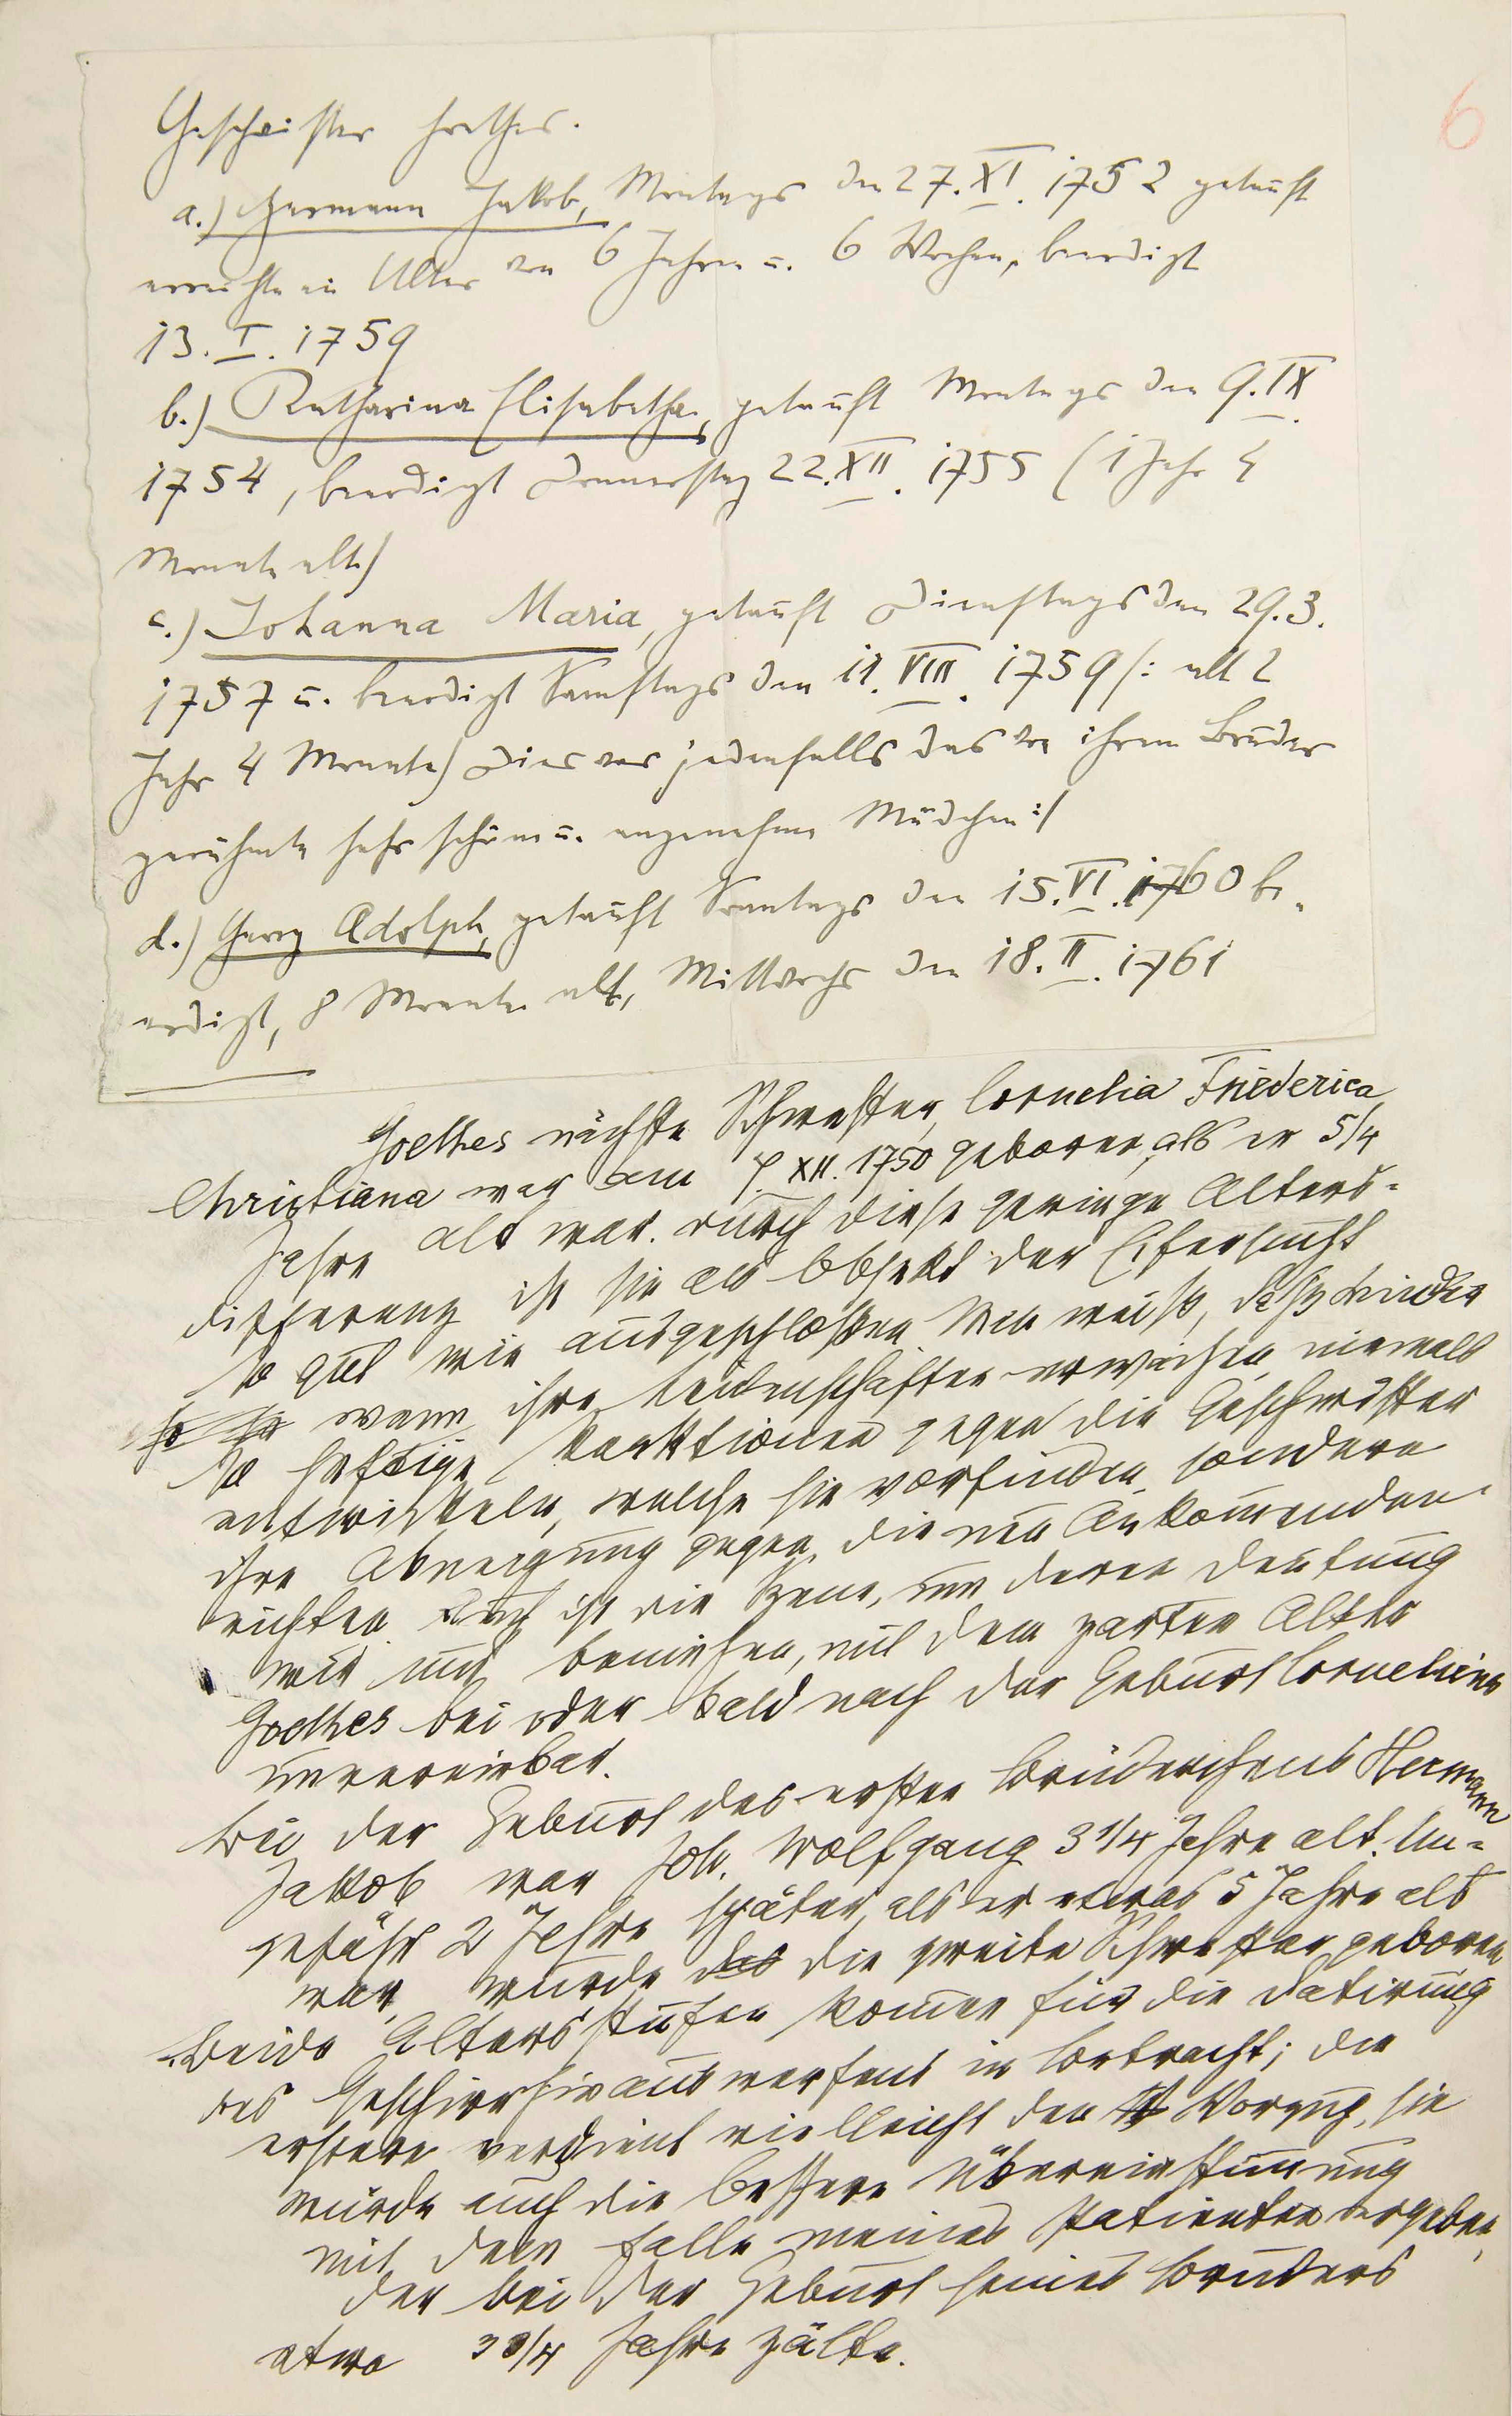 6
Geschwister Goethes.
a.) Hermann Jakob, Montags den 27. XI. 1752 getauft
erreichte ein Alter von 6 Jahren u. 6 Wochen, beerdigt
13. I. 1759
b.) Katharina Elisabetha, getauft Montags den 9. IX.
1754, beerdigt Donnerstag 22. XII. 1755 (1 Jahr 4
Monate alt)
c.) Johanna Maria, getauft Dienstags den 29.3.
1757 u. beerdigt Samstags den 11. VIII. 1759 /: alt 2
Jahr 4 Monate) Dies war jedenfalls das von ihrem Bruder
gerühmte sehr schöne u. angenehme Mädchen :/
d.) Georg Adolph, getauft Sonntags den 15. VI. 1760 be-
erdigt, 8 Monate alt, Mittwochs den 18. II. 1761
Goethes nächste Schwester, Cornelia Friederica
Christiana war am 7. XII. 1750 geboren, als er 5/4
Jahre alt war. Durch diese geringe Alters-
differenz ist sie als Objekt der Eifersucht
so gut wie ausgeschlossen. Man weiß, daß Kinder
wenn ihre Leidenschaften erwachen, niemals
so heftige Reaktionen gegen die Geschwister
entwickeln, welche sie vorfinden, sondern
ihre Abneigung gegen die neu Ankommenden
richten. Auch ist die Szene, um deren Deutung
wir uns bemühen, mit dem zarten Alter
Goethes bei oder bald nach der Geburt Cornelias
unvereinbar.
Bei der Geburt des ersten Brüderchens Hermann
Jakob war Joh. Wolfgang 3 1/4 Jahre alt. Un-
gefähr 2 Jahre später, als er etwas 5 Jahre alt
war, wurde das die zweite Schwester geboren.
Beide Altersstufen kommen für die Datirung
des Geschirrhinauswerfens in Betracht; die
erstere verdient vielleicht den Vorzug, sie
würde auch die bessere Übereinstimmung
mit dem Falle meines Patienten ergeben,
der bei der Geburt seines Bruders
etwa 3 3/4 Jahre zälte.